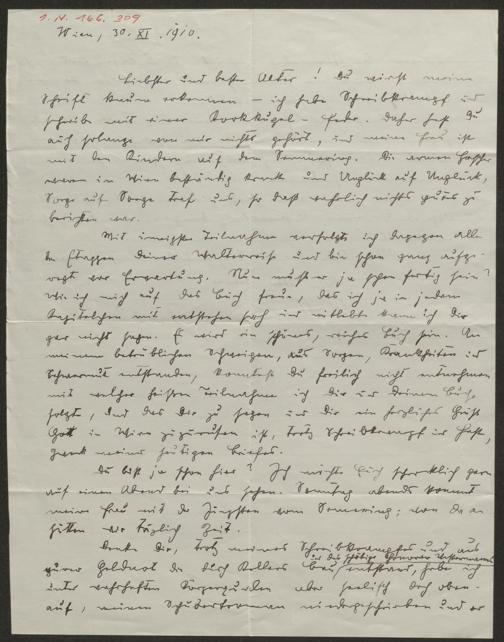 I. N. 166.309
Wien, 30. XI. 1910.
Liebster und bester Alter! Du wirst meine
Schrift kaum erkennen – ich habe Schreibkrampf und
schreibe mit einer Korkkugel-Feder. Daher hast Du
auch solange von mir nichts gehört, und meine Frau ist
mit den Kindern auf dem Semmering. Die armen Hascher
waren in Wien beständig krank und Unglück auf Unglück,
Sorge auf Sorge traf uns, so daß wahrlich nichts gutes zu
berichten war.
Mit innigster Teilnahme verfolgte ich dagegen alle
die Etappen deiner und bin schon ganz aufge-
regt vor Erwartung. Nun mußt er ja schon fertig sein?
Wie ich mich auf das Buch freue, das ich ja in jedem
Kapitelchen mit entstehen sah und mitlebte kann ich dir
gar nicht sagen. Es wird ein schönes, reiches Buch sein. An
meinem betrüblichen Schweigen, aus Sorgen, Krankheiten und
Schwermut entstanden, konntest Du freilich nicht entnehmen
mit welcher heißen Teilnahme ich dir und deinem Buch
folgte, und das dir zu sagen und dir ein herzliches Grüß
Gott in Wien zuzurufen ist, trotz Schreibkrampf und
Zweck meines heutigen Briefes.
Du bist ja schon hier? Ich möchte Euch schrecklich gern
auf einen Abend bei uns sehen. Sonntag abends kommt
meine Frau mit de Jüngsten vom Semmering; von da an
hätten wir täglich Zeit.
Denke dir, trotz meines Schreibkrampfes und aus
und der
purer Geldnot die durch Kollers entstand, habe ich
unter wahrhaften aber seelisch doch oben-
auf, meinen Schubertroman niedergeschrieben und er